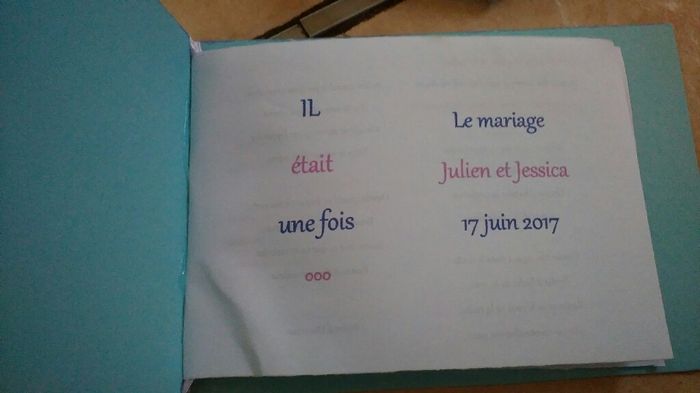 IL
était
une fois
ooo
Le mariage
Julien et Jessica
17 juin 2017